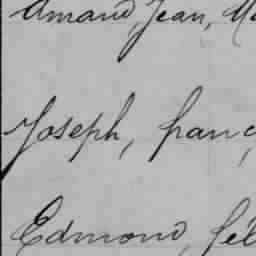 Amand, Jean, Ma
Joseph, franç
Edmond, fél